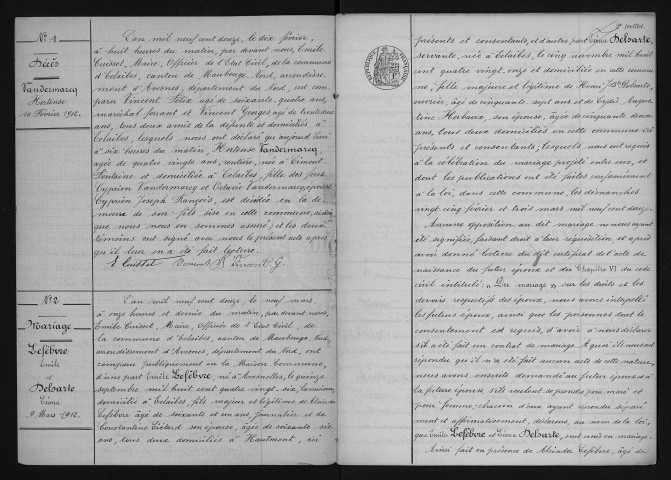 N° 1
Décès
Vandermarcq
Hortense
10 Février 1912.
L'an mil neuf cent douze, le dix février,
à huit heures du matin, par devant nous, Emile
Cuisset, Maire, Officier de l'Etat Civil, de la commune
d'Eclaibes, canton de Maubeuge Nord, arrondisse-
ment d'Avesnes, département du Nord, ont com-
paru Vincent Félix âgé de soixante quatre ans,
maréchal ferrant et Vincent Georges âgé de trente
ans, tous deux amis de la défunte et domiciliés à
Eclaibes, lesquels nous ont déclaré qu'aujourd'hui
à six heures du matin, Hortense Vandermarcq
âgée de quatre vingts ans, rentière, née à Limont-
Fontaine et domiciliée à Eclaibes, fille des feus
Cyprien Vandermarcq et Octavie Vandermarcq, épouse
Cyprien Joseph François, est décédée en la de-
meure de son fils sise en cette commune, ainsi
que nous nous en sommes assuré, et les deux
témoins ont signé avec nous le présent acte après
qu'il leur en a été fait lecture.
E. Cuisset Vincent F Vincent G.
N° 2
Mariage
Lefèbvre
Emile
et
Delsarte
Léona
9 Mars 1912.
L'an mil neuf cent douze, le neuf mars
à onze heures et demie du matin, par devant nous,
Emile Cuisset, Maire, Officier de l'Etat Civil, de
la commune d'Eclaibes, canton de Maubeuge Nord,
arrondissement d'Avesnes, département du Nord, ont
comparu publiquement en la Maison Commune,
d'une part Emile Lefèbvre, né à le quinze
septembre mil huit cent quatre vingt-six,
domicilié à Eclaibes, fils majeur et légitime de Aléandre
Lefèbvre âgé de soixante et un ans, journalier et de
Constantine Liétard son épouse, âgée de soixante six
ans, tous deux domiciliés à Hautmont, ici
2e feuillet.
présents et consentants, et d'autre part Léona Delsarte,
servante, née à Eclaibes, le cinq novembre mil huit
cent quatre vingt onze et domiciliée en cette commu-
ne, fille majeure et légitime de Henri Jh Bte Delsarte,
ouvrier, âgé de cinquante sept ans et de Lydie Augus-
tine Herbaux, son épouse, âgée de cinquante deux
ans, tous deux domiciliés en cette commune ici
présents et consentants; lesquels nous ont requis
à la célébration du mariage projeté entre eux, et
dont les publications ont été faites conformément
à la loi, dans cette commune, les dimanches
vingt cinq février et trois mars mil neuf cent douze.
Aucune opposition au dit mariage ne nous ayant
été signifiée, faisant droit à leur réquisition, et après
avoir donné lecture du dit certificat de l'acte de
naissance du futur époux et du Chapitre VI du code
civil intitulé: « Du mariage » sur les droits et les
devoirs respectifs des époux, nous avons interpellé
les futurs époux, ainsi que les personnes dont le
consentement est requis, d'avoir à nous déclarer
s'il a été fait un contrat de mariage. A quoi ils nous ont
répondu qu'il n'a été fait aucun acte de cette nature,
nous avons ensuite demandé au futur époux et à
la future épouse, s'ils veulent se prendre pour mari et
pour femme; chacun d'eux ayant répondu séparé-
ment et affirmativement, déclarons, au nom de la loi,
que Emile Lefèbvre et Léona Delsarte, sont unis en mariage.
Ainsi fait en présence de Aléander Lefèbvre, âgé de